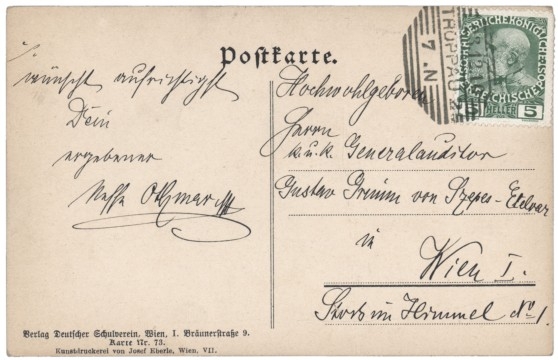 Postkarte.
wünscht aufrichtigst
Dein
ergebener
Neffe Othmar
Hochwohlgeboren
Herrn
k.u.k. Generalauditor
Gustav Grimm von Szepes-Etelvar
in
Wien I.
Stock im Himmel No 1.
KAISERLICHE KÖNIGLICHE
ÖSTERREICHISCHE POST
5 HELLER 5
TROPPAU 2
7. N
Verlag Deutscher Schulverein. Wien, I. Bräunerstraße 9.
Karte Nr. 73.
Kunstdruckerei von Josef Eberle, Wien, VII.